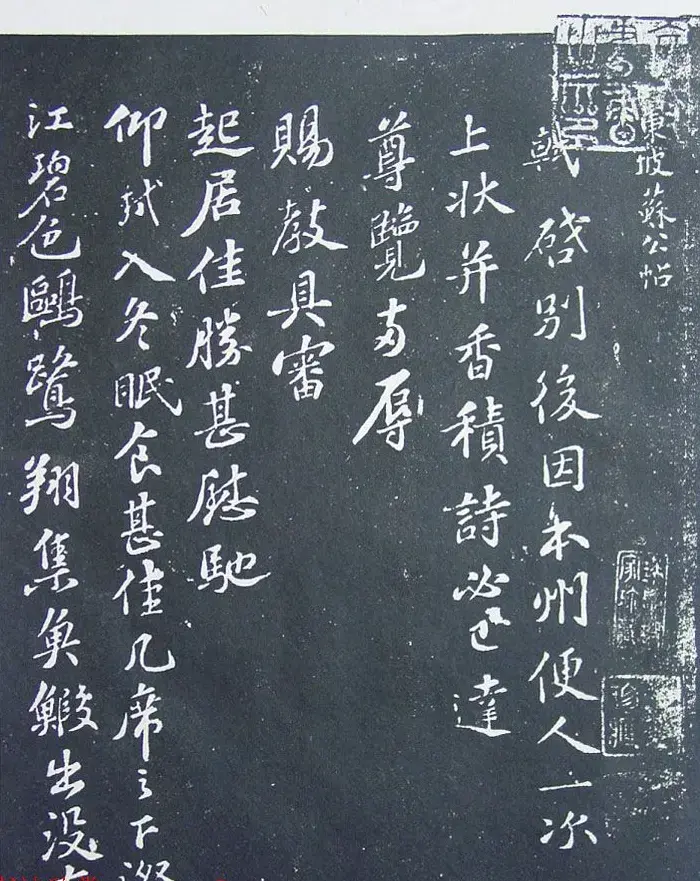 東坡蘇公帖
軾啓別後因本州便人一次
上状并香積詩必已達
尊覽兩辱
賜教具審
起居佳勝甚慰馳
仰軾入冬眠食甚佳几席之下澄
江碧色鷗鷺翔集魚鰕出没有